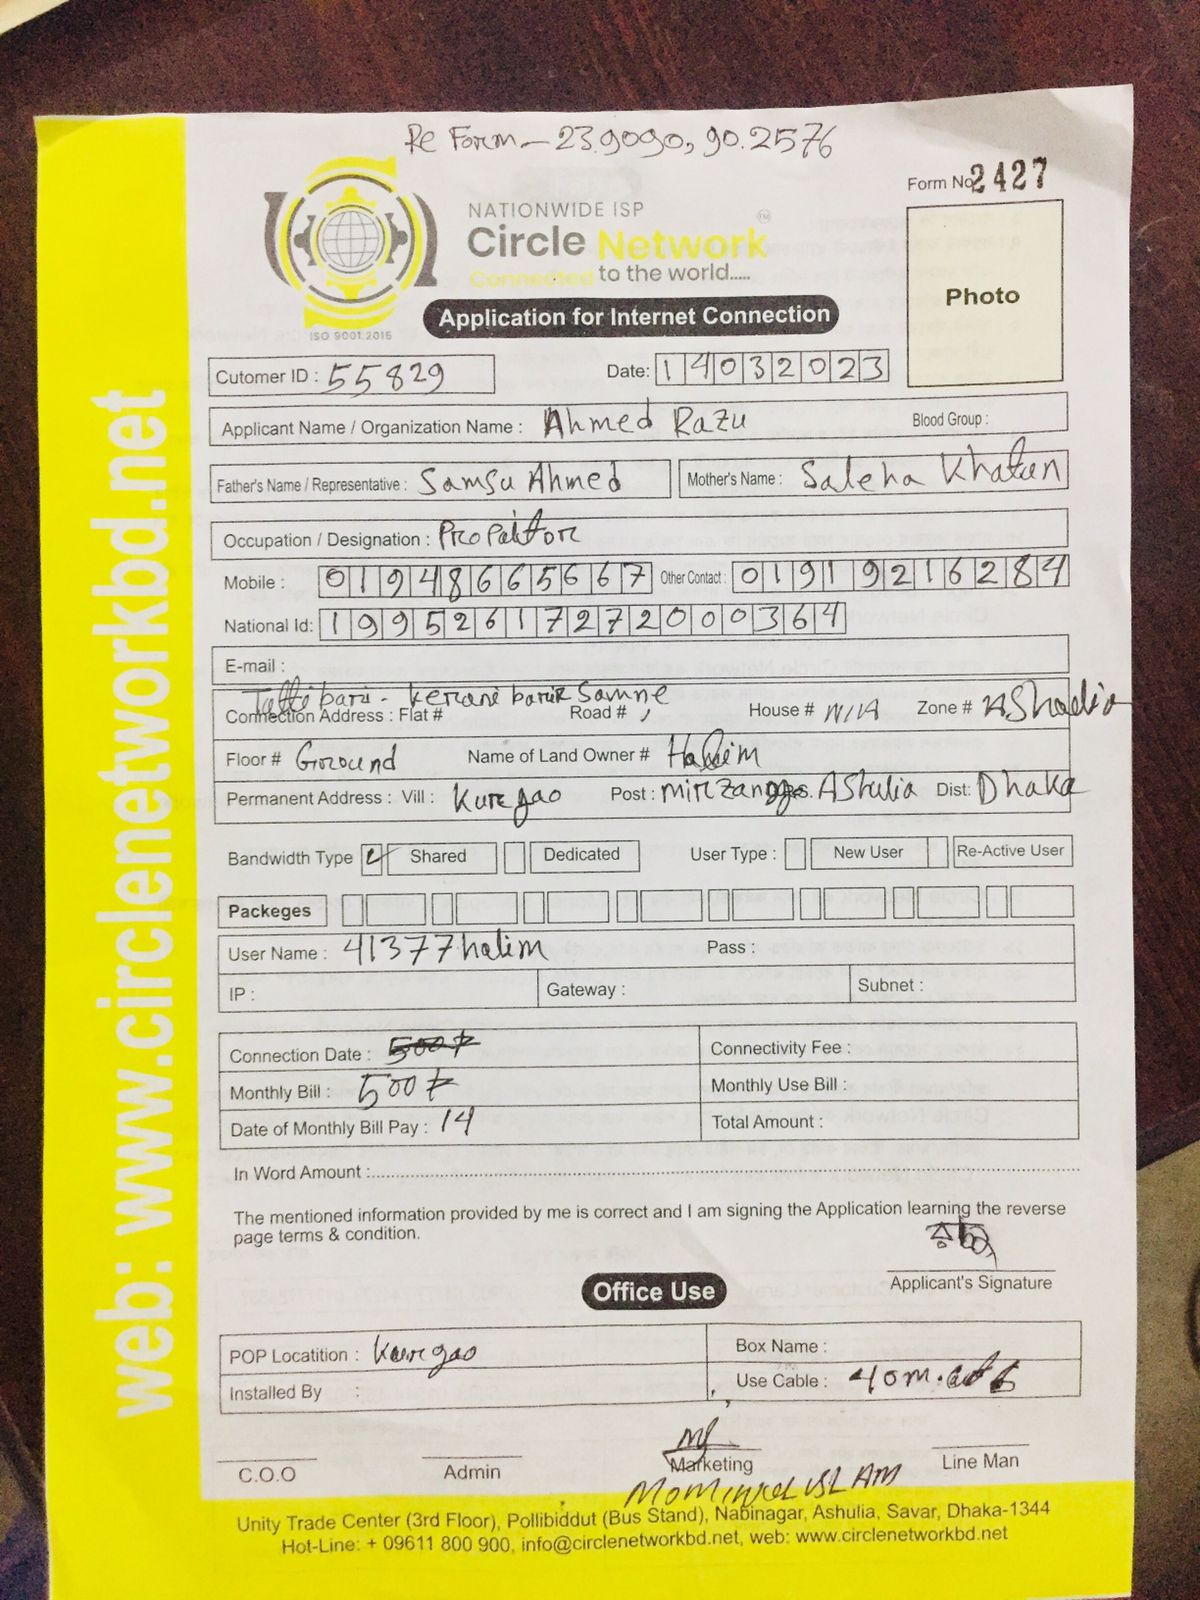 Re Form - 23.9090, 90.2576
Form No 2427
NATIONWIDE ISP
TM
Circle Network
Connected to the world.....
ISO 9001:2015
Application for Internet Connection
Photo
Cutomer ID : 55829
Date: 14032023
Applicant Name / Organization Name : Ahmed Razu
Blood Group :
Father's Name / Representative : Samsu Ahmed
Mother's Name : Saleha Khatun
Occupation / Designation :
Mobile : 01948665667
Other Contact : 01919216284
National Id: 19952617272000364
E-mail :
Connection Address : Flat # Road # House # N/A Zone #
Floor # Ground Name of Land Owner # Halim
Permanent Address : Vill : Kurgao Post : Ashulia Dist: Dhaka
Bandwidth Type Shared Dedicated User Type : New User Re-Active User
Packeges
User Name : 41377halim Pass :
IP : Gateway : Subnet :
Connection Date : Connectivity Fee :
Monthly Bill : 500 Monthly Use Bill :
Date of Monthly Bill Pay : 14 Total Amount :
In Word Amount :
The mentioned information provided by me is correct and I am signing the Application learning the reverse
page terms & condition.
Applicant's Signature
Office Use
POP Locatition : Kurgao Box Name :
Installed By : Use Cable : 40m.
C.O.O Admin Marketing Line Man
Unity Trade Center (3rd Floor), Pollibiddut (Bus Stand), Nabinagar, Ashulia, Savar, Dhaka-1344
Hot-Line: + 09611 800 900, info@circlenetworkbd.net, web: www.circlenetworkbd.net
web: www.circlenetworkbd.net